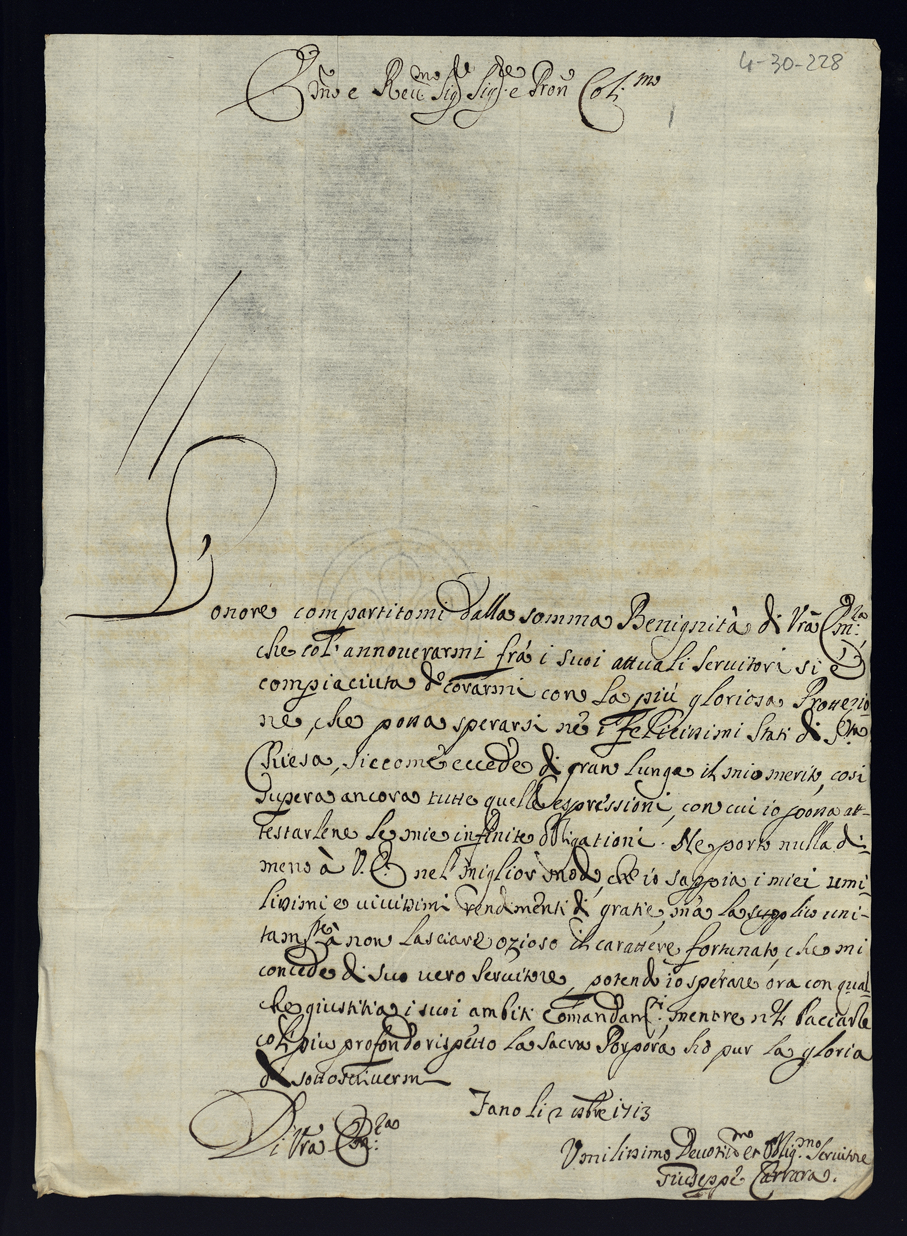 4-30-228
Em.mo e Reu.mo Sig.re Sig.re e Pron Col.mo
L'onore compartitomi dalla somma Benignità di Vrã Em:za
che coll'annouerarmi frà i suoi attuali seruitori si è
compiaciuta decorarmi con la più gloriosa Protezio
ne, che possa sperarsi nè i felicissimi Stati di S.ta
Chiesa, siccome eccede di gran lunga il mio merito, così
supera ancora tutte quelle espressioni, con cui io possa at-
testarlene le mie infinite obligationi. Ne porto nulla di-
meno à V. E. nel miglior modo, che io sappia i miei umi-
lissimi e viuissimi rendimenti di gratie, mà la supplico uni-
tam.te à non lasciare ozioso il carattere fortunato, che mi
concede di suo uero Seruitore, potendo io sperare ora con qual-
che giustitia i suoi ambiti Comandam.ti, mentre nel bacciarle
col più profondo rispetto la sacra Porpora hò pur la gloria
di sottoscriuermi
Fano li 2 1713
Di Vrã Em:za
Vmilissimo Deuotis.mo et Oblig.mo Seruitore
Giuseppe Carrara.